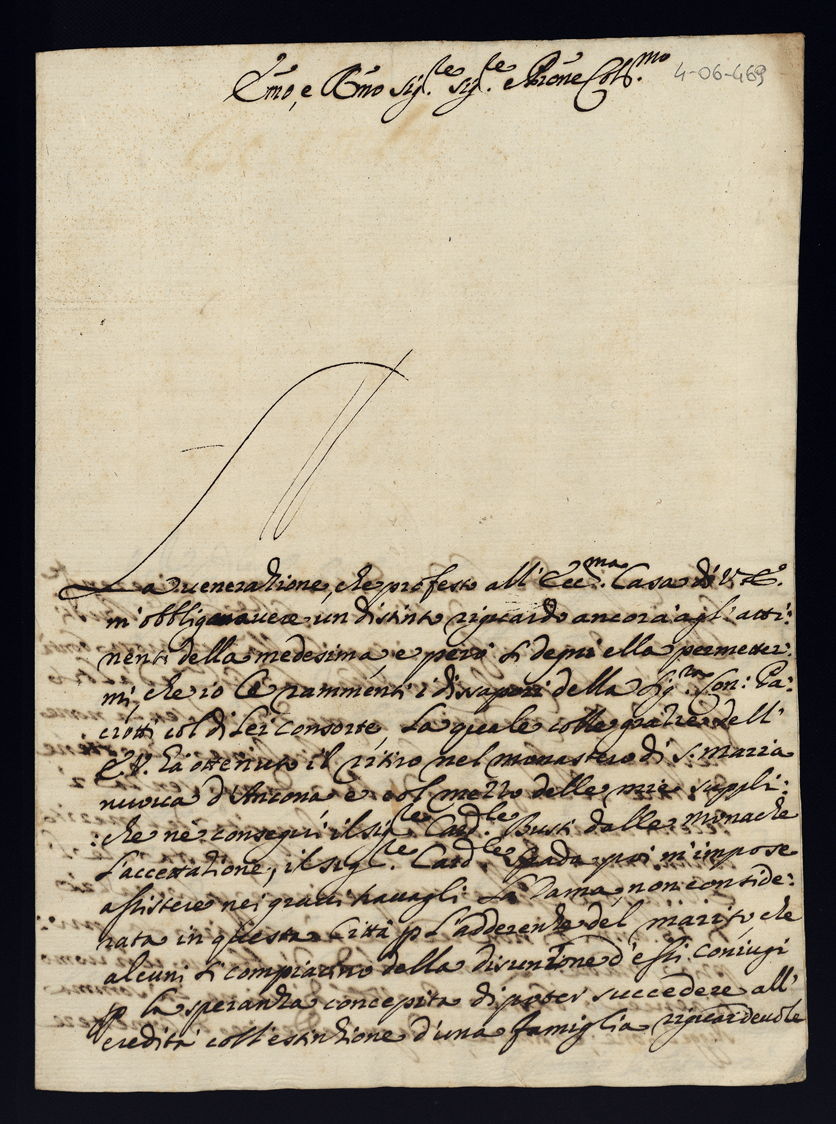 Em̃o, e Rm̃o Sig.re Sig.re e Pr̃one Col.mo
4-06-469
La venerazione, che professo all' Ecc.ma Casa di V. E.
m'obbliga avere un distinto riguardo ancora agl' atti:
nenti della medesima, e però si degni ella permetter:
mi, che io Le rammenti i dissapori della Sig.ra Con: Pa:
ciotti col di Lei consorte, La quale colle grazie dell'
E. V. hà ottenuto il ritiro nel monastero di S. Maria
nuova d'Ancona, e col mezzo delle mie suppli:
:che ne conseguì il Sig.re Card.le Bussi dalle Monache
l'accettazione, il Sig.re Card.le Spada poi m'impose
assistere ne i gravi travagli La Dama, non conside:
rata in questa Città p l'aderenze del marito, che
alcuni si compiacino della disunione d'essi coniugi
p la speranza concepita di poter succedere all'
eredità coll'estinzione d'una famiglia riguardevole